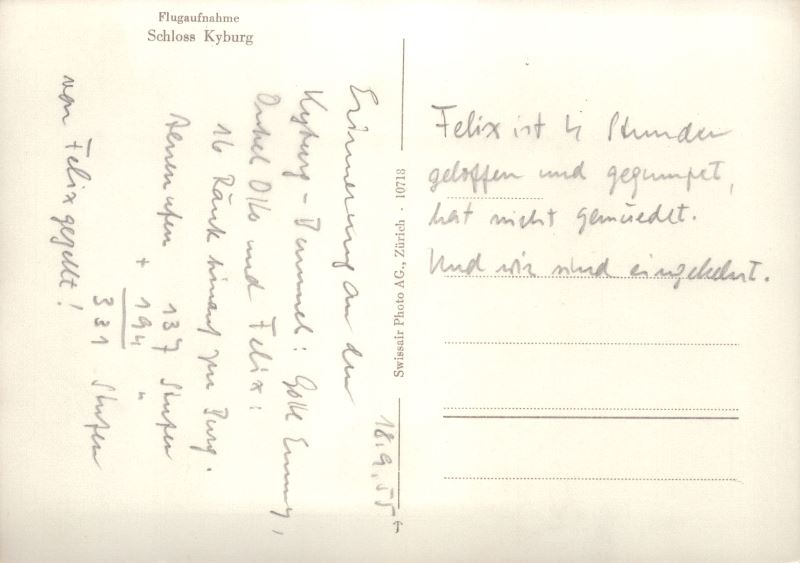 Flugaufnahme
Schloss Kyburg
Erinnerung an den
Kyburg-Bummel: Gotte Emmy,
Onkel Otto und Felix:
16 Ränk hinauf zur Burg.
137 Stufen
+ 194 "
331 Stufen
von Felix gezellt!
18.9.55
Swissair Photo AG., Zürich · 10718
Felix ist 4 Stunden
geloffen und gegumpet,
hat nicht gemüedet.
Und wir sind eingekehrt.